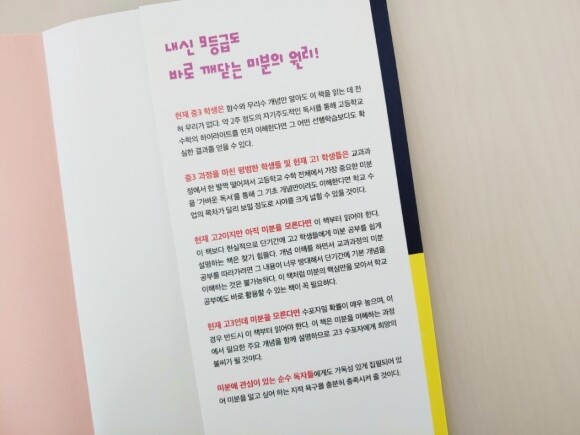 내신 5등급도
바로 깨닫는 미분의 원리!
현재 중3 학생은 함수와 무리수 개념만 알아도 이 책을 읽는 데 전
혀 무리가 없다. 약 2주 정도의 자기주도적인 독서를 통해 고등학교
수학의 하이라이트를 먼저 이해한다면 그 어떤 선행학습보다도 확
실한 결과를 얻을 수 있다.
중3 과정을 마친 평범한 학생들 및 현재 고1 학생들은 교과과
정에서 한 발짝 떨어져서 고등학교 수학 전체에서 가장 중요한 미분
을 '가벼운 독서'를 통해 그 기초 개념만이라도 이해한다면 학교 수
업의 목차가 달리 보일 정도로 시야를 크게 넓힐 수 있을 것이다.
현재 고2이지만 아직 미분을 모른다면 이 책부터 읽어야 한다.
이 책보다 현실적으로 단기간에 고2 학생들에게 미분 공부를 쉽게
설명하는 책은 찾기 힘들다. 개념 이해를 하면서 교과과정의 미분
공부를 따라가려면 그 내용이 너무 방대해서 단기간에 기본 개념을
이해하는 것은 불가능하다. 이 책처럼 미분의 핵심만을 모아서 학교
공부에도 바로 활용할 수 있는 책이 꼭 필요하다.
현재 고3인데 미분을 모른다면 수포자일 확률이 매우 높으며, 이
경우 반드시 이 책부터 읽어야 한다. 이 책은 미분을 이해하는 과정
에서 필요한 주요 개념을 함께 설명하므로 고3 수포자에게 희망의
불씨가 될 것이다.
미분에 관심이 있는 순수 독자들에게도 가독성 있게 집필되어 있
어 미분을 알고 싶어 하는 지적 욕구를 충분히 충족시켜 줄 것이다.